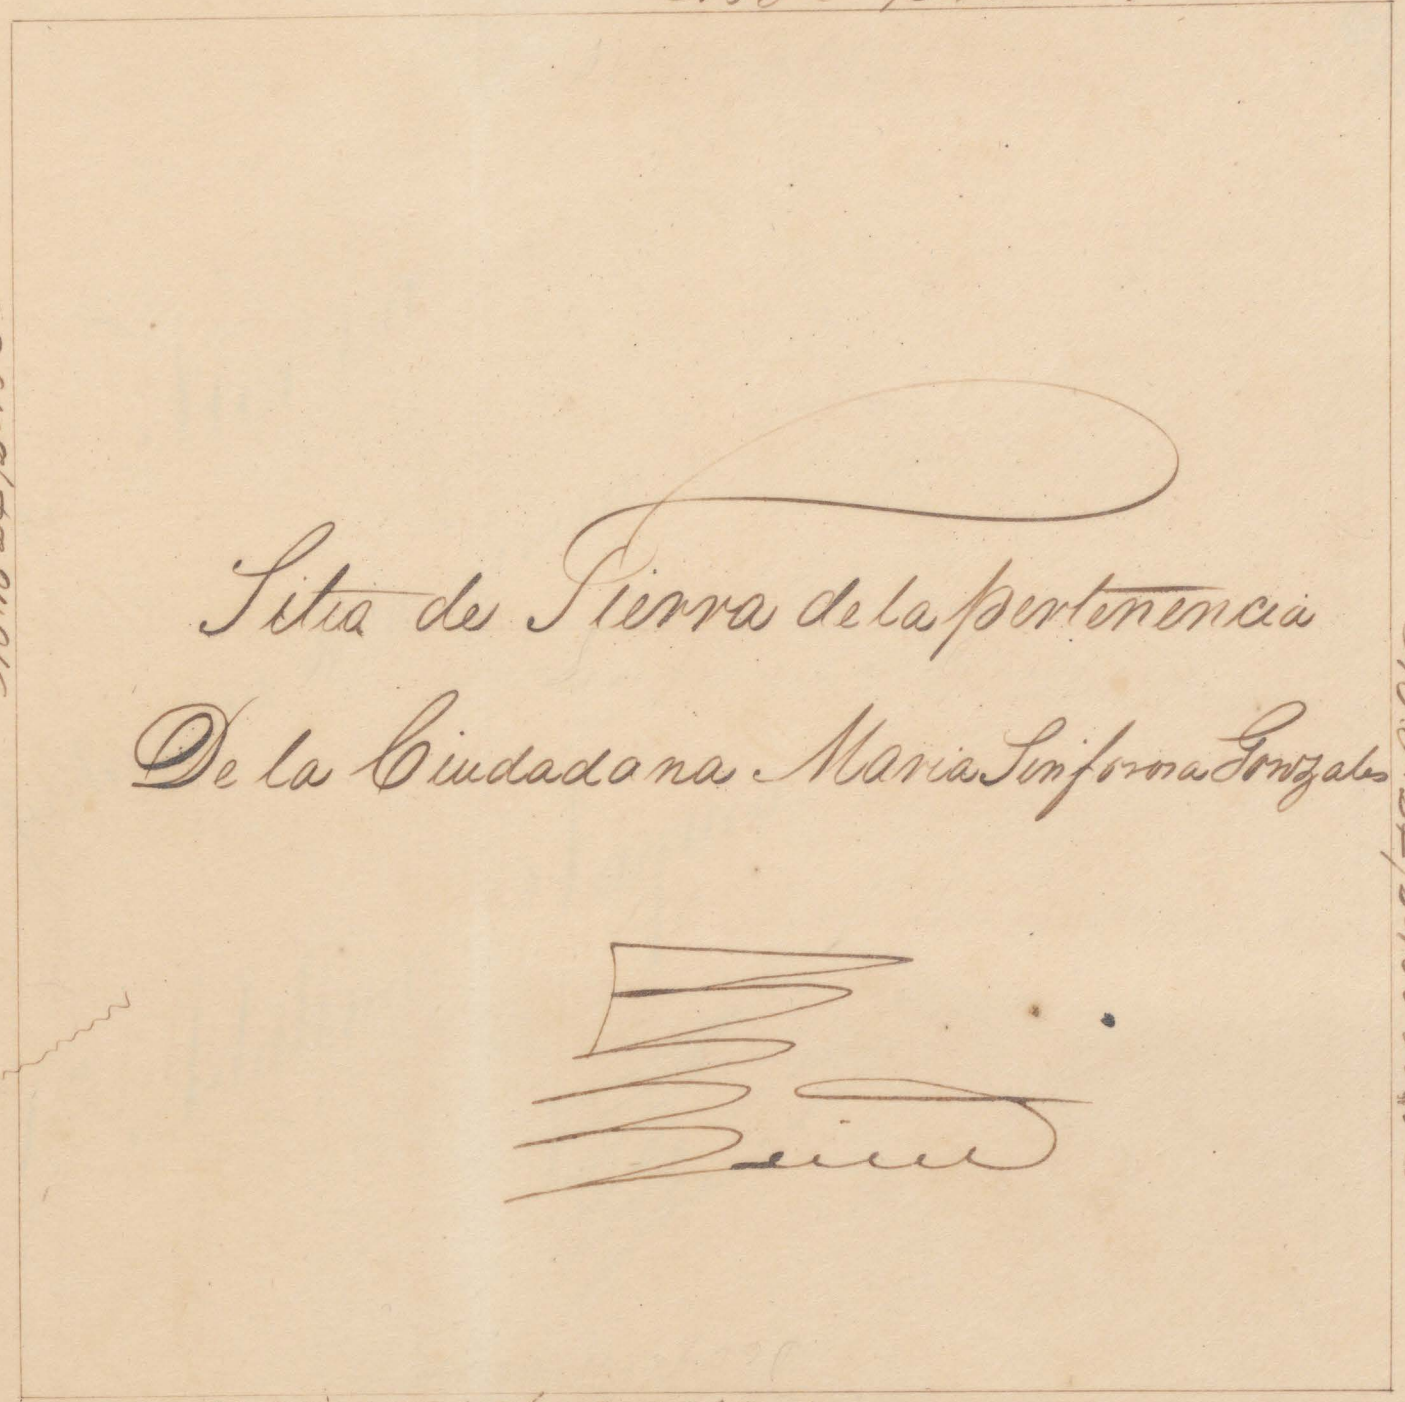 Sitio de Tierra de la pertenencia
De la Ciudadana Maria Sinforosa Gonzales